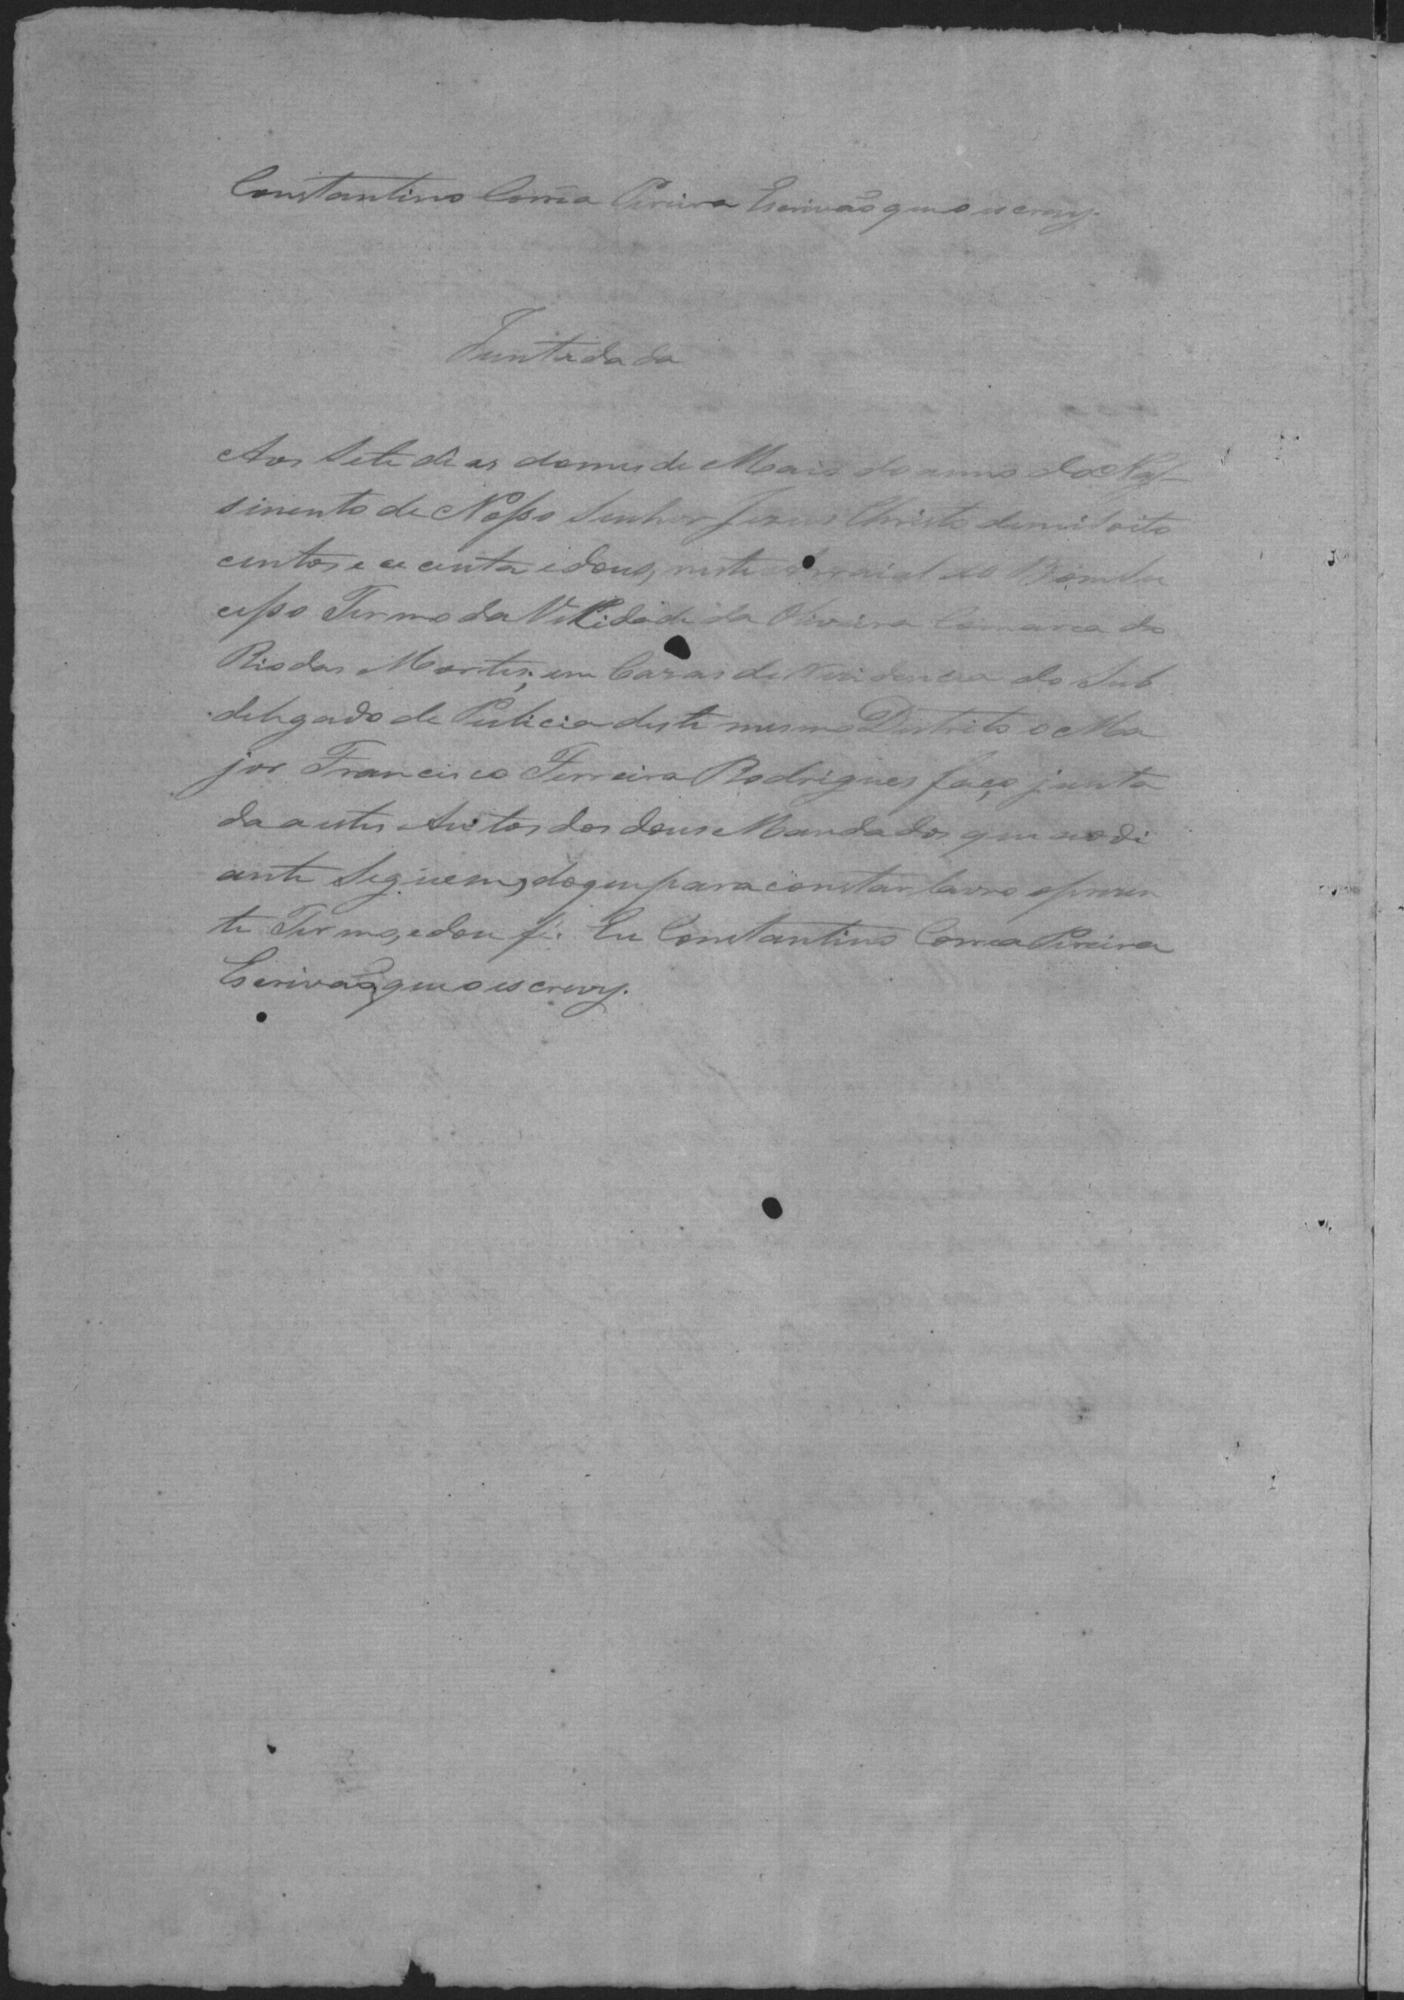 Constantino Corrêa Pereira Escrivão que o escrevy.
Juntada da
Aos Sete dias do mes de Maio do anno do Nas-
simento de Nosso Senhor Jezus Christo de mil oito
centos e cecenta e dous, neste Arraial do Bom Su
cesso Termo da Villa da Oliveira Comarca do
Rio das Mortes, em Cazas de Rezidencia do Sub
delegado de Policia deste mesmo Destrito o Ma
jor Francisco Ferreira Rodrigues faço junta
da a estes Autos dos dous Mandados que ao di
ante Seguem, do que para constar lavro o prezen
te Termo, e dou fé. Eu Constantino Corrêa Pereira
Escrivão que o escrevy.